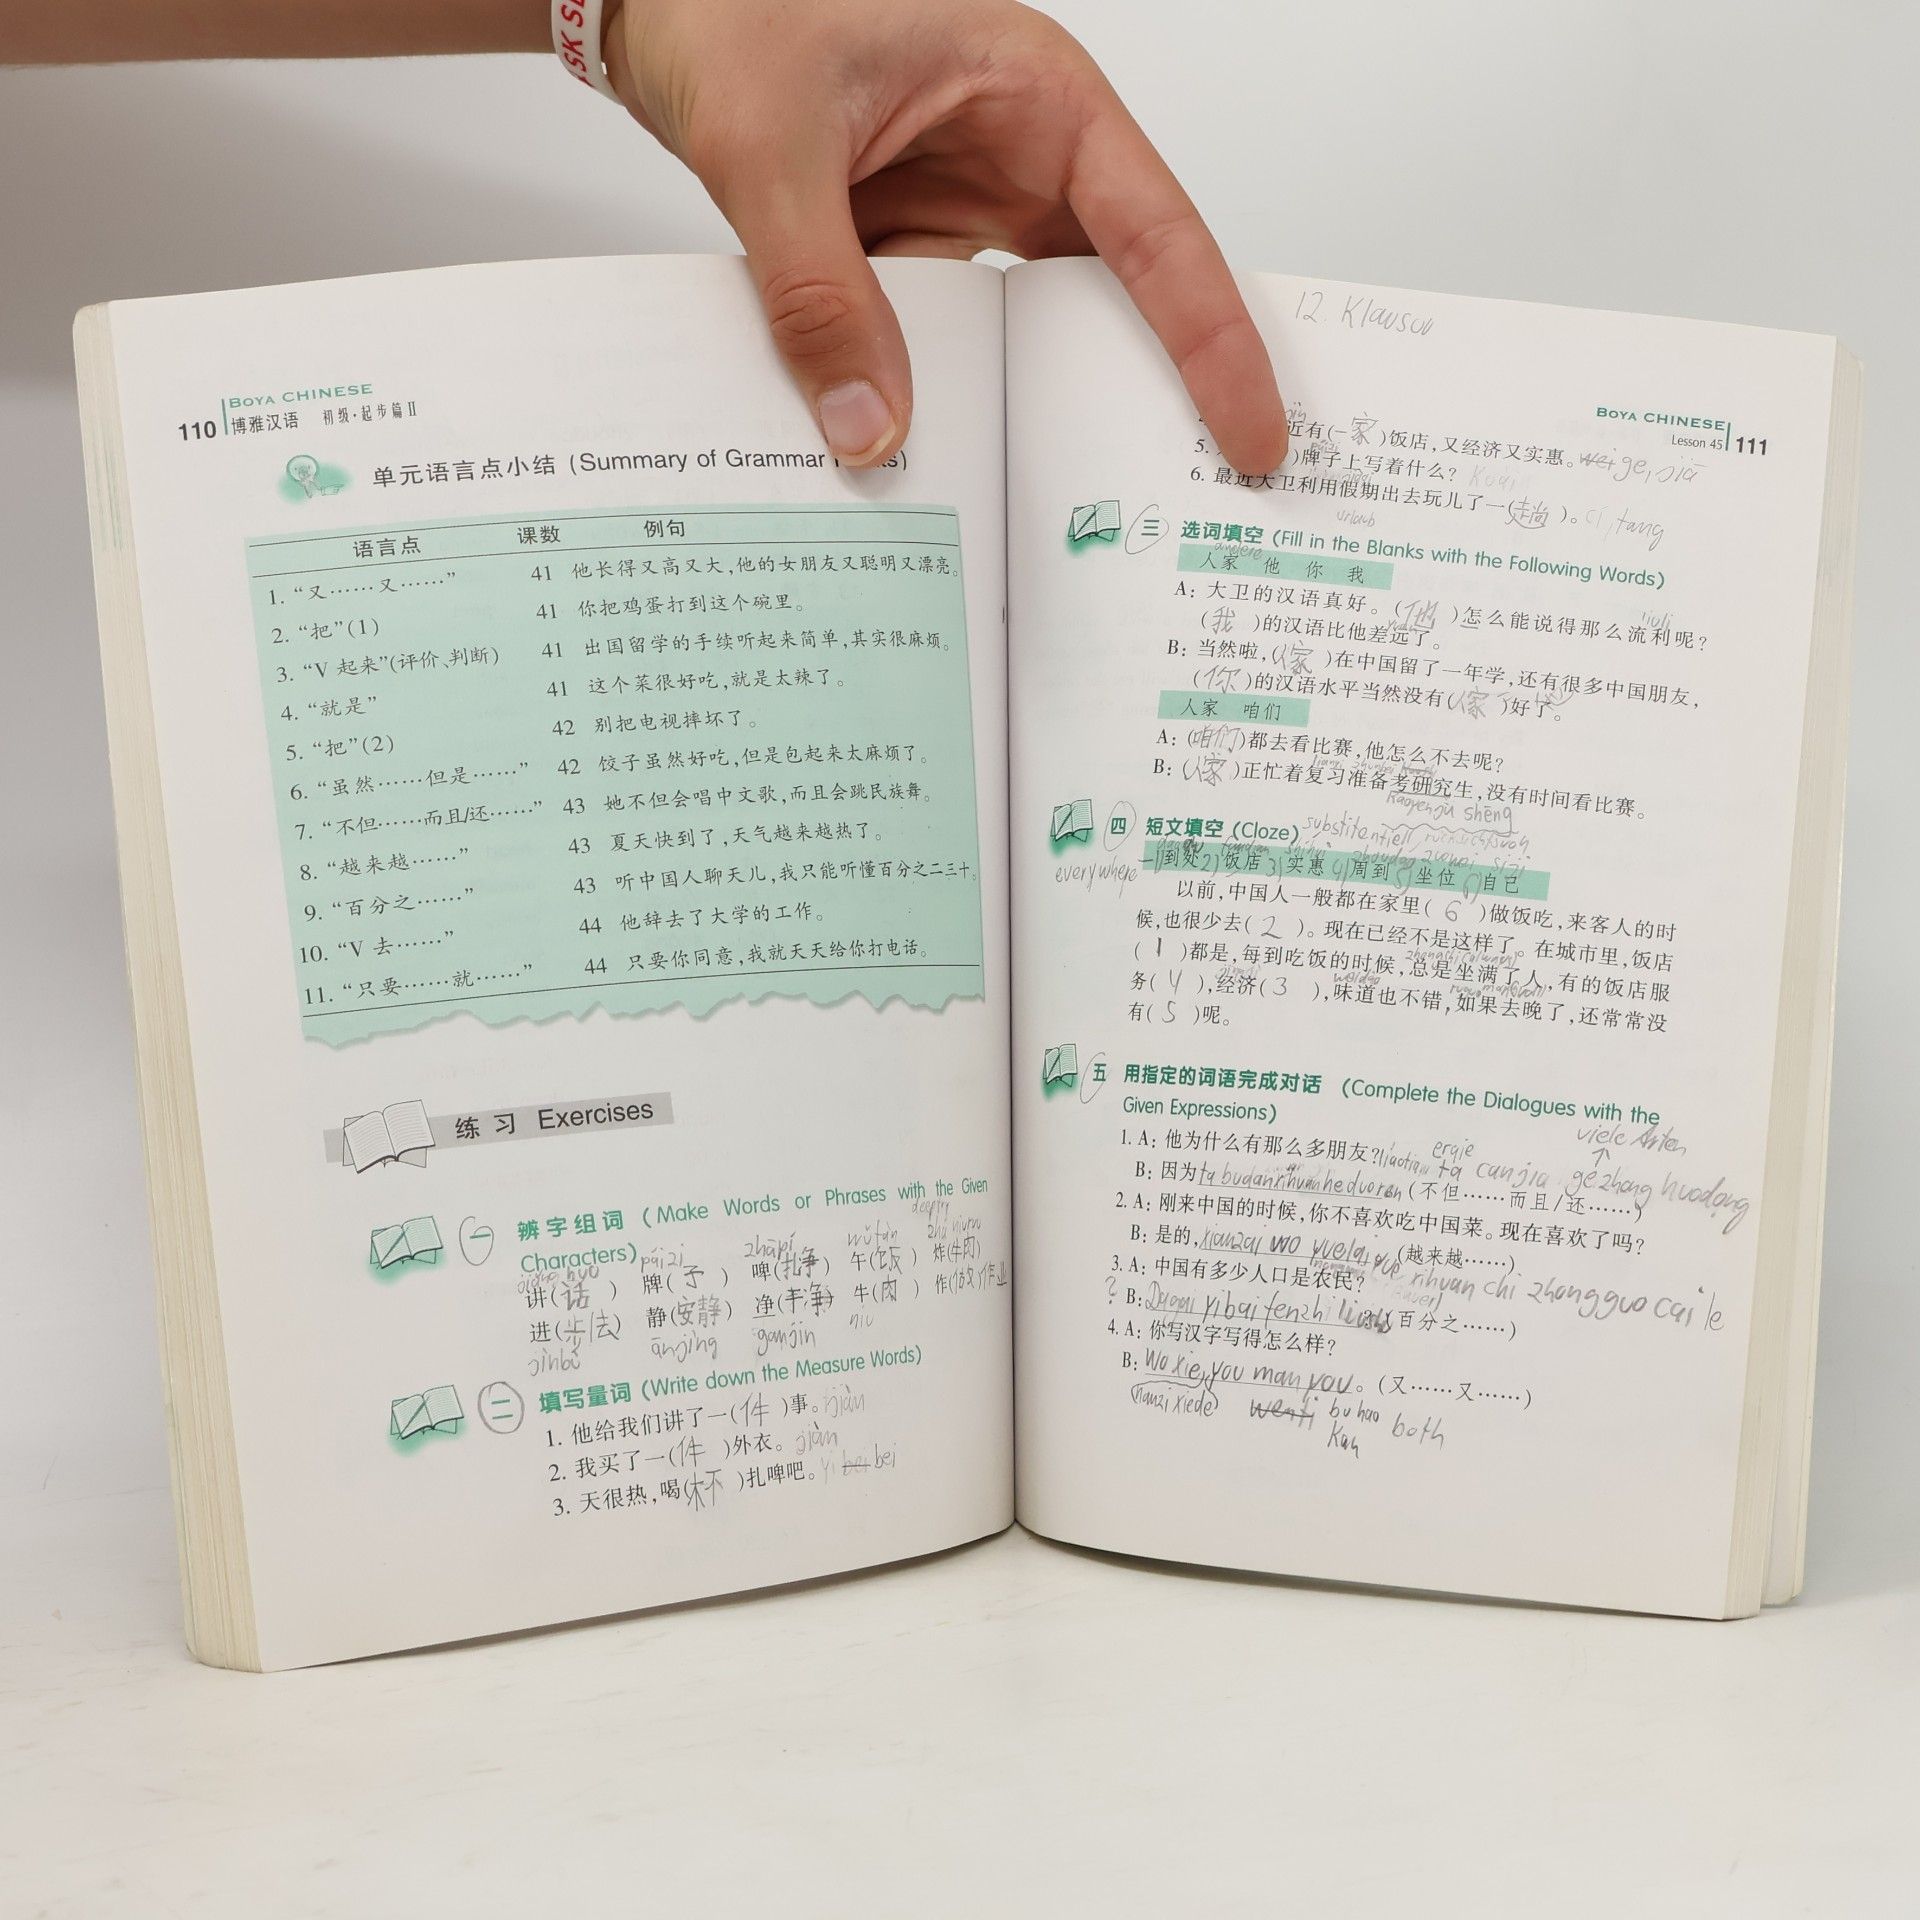 SK SL
BOYA CHINESE
110 博雅汉语 初级·起步篇Ⅱ
单元语言点小结 (Summary of Grammar
语言点 课数 例句
1. “又……又……” 41 他长得又高又大,他的女朋友又聪明又漂亮。
2. “把”(1) 41 你把鸡蛋打到这个碗里。
3. “V 起来”(评价、判断) 41 出国留学的手续听起来简单,其实很麻烦。
4. “就是” 41 这个菜很好吃,就是太辣了。
5. “把”(2) 42 别把电视摔坏了。
6. “虽然……但是……” 42 饺子虽然好吃,但是包起来太麻烦了。
7. “不但……而且/还……” 43 她不但会唱中文歌,而且会跳民族舞。
8. “越来越……” 43 夏天快到了,天气越来越热了。
9. “百分之……” 43 听中国人聊天儿,我只能听懂百分之二三十。
10. “V 去……” 44 他辞去了大学的工作。
11. “只要……就……” 44 只要你同意,我就天天给你打电话。
练习 Exercises
一 辨字组词 (Make Words or Phrases with the Given
Characters)
páizi zhāpí wǔfàn
讲(话) 牌(子) 啤( ) 午(饭) 炸(牛肉)
进(步) 静(安静) 净(干净) 牛(肉) 作( 作业
jìnbù ānjìng ganjin niu
二 填写量词 (Write down the Measure Words)
1. 他给我们讲了一(件)事。jiàn
2. 我买了一(件)外衣。jiàn
3. 天很热,喝(杯)扎啤吧。yi bei bei
12. Klausur
BOYA CHINESE
Lesson 45 111
近有(一家)饭店,又经济又实惠。wei ge, jiā
5. )牌子上写着什么?
6. 最近大卫利用假期出去玩儿了一(趟)。ci, tang
urlaub
三 选词填空 (Fill in the Blanks with the Following Words)
andere
人家 他 你 我
A: 大卫的汉语真好。(他)怎么能说得那么流利呢?
liuli
(我)的汉语比他差远了。
B: 当然啦,(人家)在中国留了一年学,还有很多中国朋友,
(你)的汉语水平当然没有(人家)好了。
人家 咱们
A: (咱们)都去看比赛,他怎么不去呢?
B: (人家)正忙着复习准备考研究生,没有时间看比赛。
四 短文填空 (Cloze)
everywhere 1)到处 2)饭店 3)实惠 4)周到 5)坐位 6)自己
以前,中国人一般都在家里( 6 )做饭吃,来客人的时
候,也很少去( 2 )。现在已经不是这样了。在城市里,饭店
( 1 )都是,每到吃饭的时候,总是坐满了人,有的饭店服
务( 4 ),经济( 3 ),味道也不错,如果去晚了,还常常没
有( 5 )呢。
五 用指定的词语完成对话 (Complete the Dialogues with the
Given Expressions)
viele Arten
1. A: 他为什么有那么多朋友? liaotian erqie
B: 因为ta budan xihuan he duoren (不但……而且/还……) ta canjia gezhong huodong
2. A: 刚来中国的时候,你不喜欢吃中国菜。现在喜欢了吗?
B: 是的, xianzai wo yuelai yue (越来越……) xihuan chi zhongguo cai le
3. A: 中国有多少人口是农民?
? B: (百分之……)
4. A: 你写汉字写得怎么样?
B: wo xie, you man you。(又……又……)
(hanzi xiede) bu hao both
kan